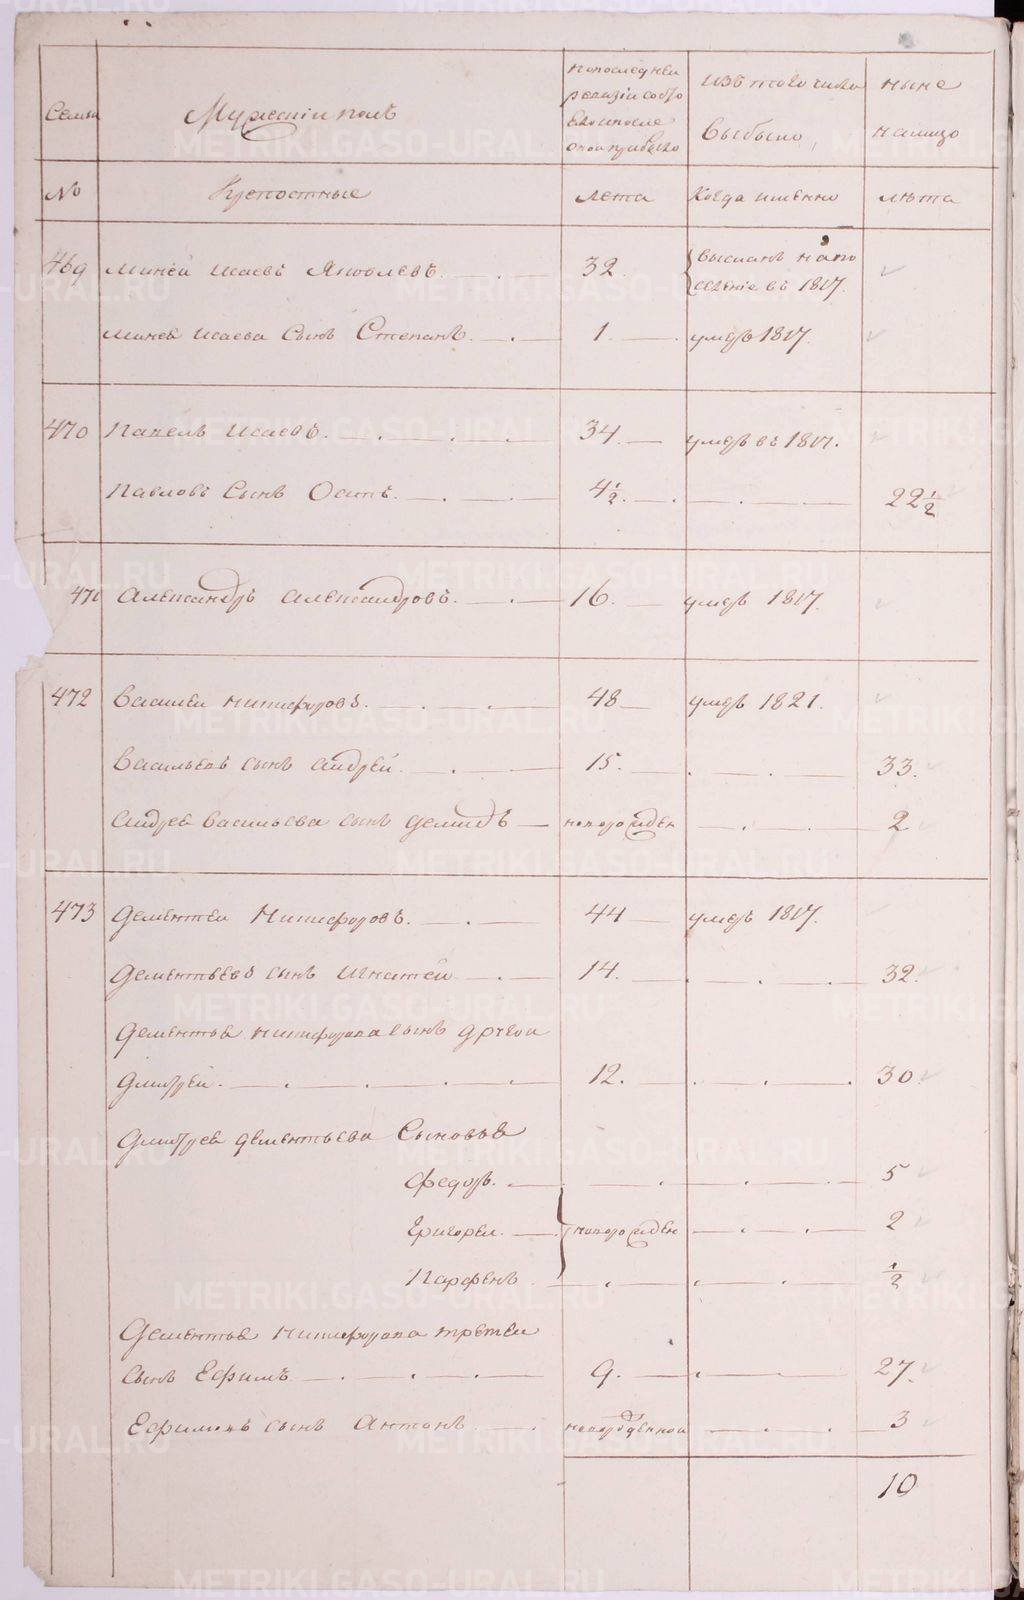 Семьи
Мужескiи полъ
Кріпостные
По последней
ревизiи состо
яло и после
оной прибыло
Изъ того числа
выбыло
ныне
на лицо
№
Крепостные
лета
Когда именно
лѣта
469 Миней Исаевъ Яковлевъ. 32. высланъ на по
селенiе въ 1817.
Минея Исаева Сынъ Степанъ. 1. умеръ 1817.
470 Павелъ Исаевъ. 34. умеръ въ 1817.
Павловъ Сынъ Осипъ. 4 1/2. 22 1/2
471 Александръ Александровъ. 16. умеръ 1817.
472 Василеи Никифоровъ. 48 умеръ 1821.
Васильевъ сынъ Андрей. 15. 33.
Андрея Васильева сынъ Демидъ новорожден 2
473 Дементеи Никифоровъ. 44 умеръ 1817.
Дементьевъ сынъ Игнатей 14. 32.
Дементья Никифорова сынъ другои
Дмитрей. 12. 30
Дмитрея Дементьева Сыновья
Федоръ. 5
Григореи. новорожден 2
Парфенъ 1/2
Дементья Никифорова третеи
сынъ Ефимъ 9. 27.
Ефимовъ сынъ Антонъ новорожденнои 3
10
METRIKI.GASO-URAL.RU